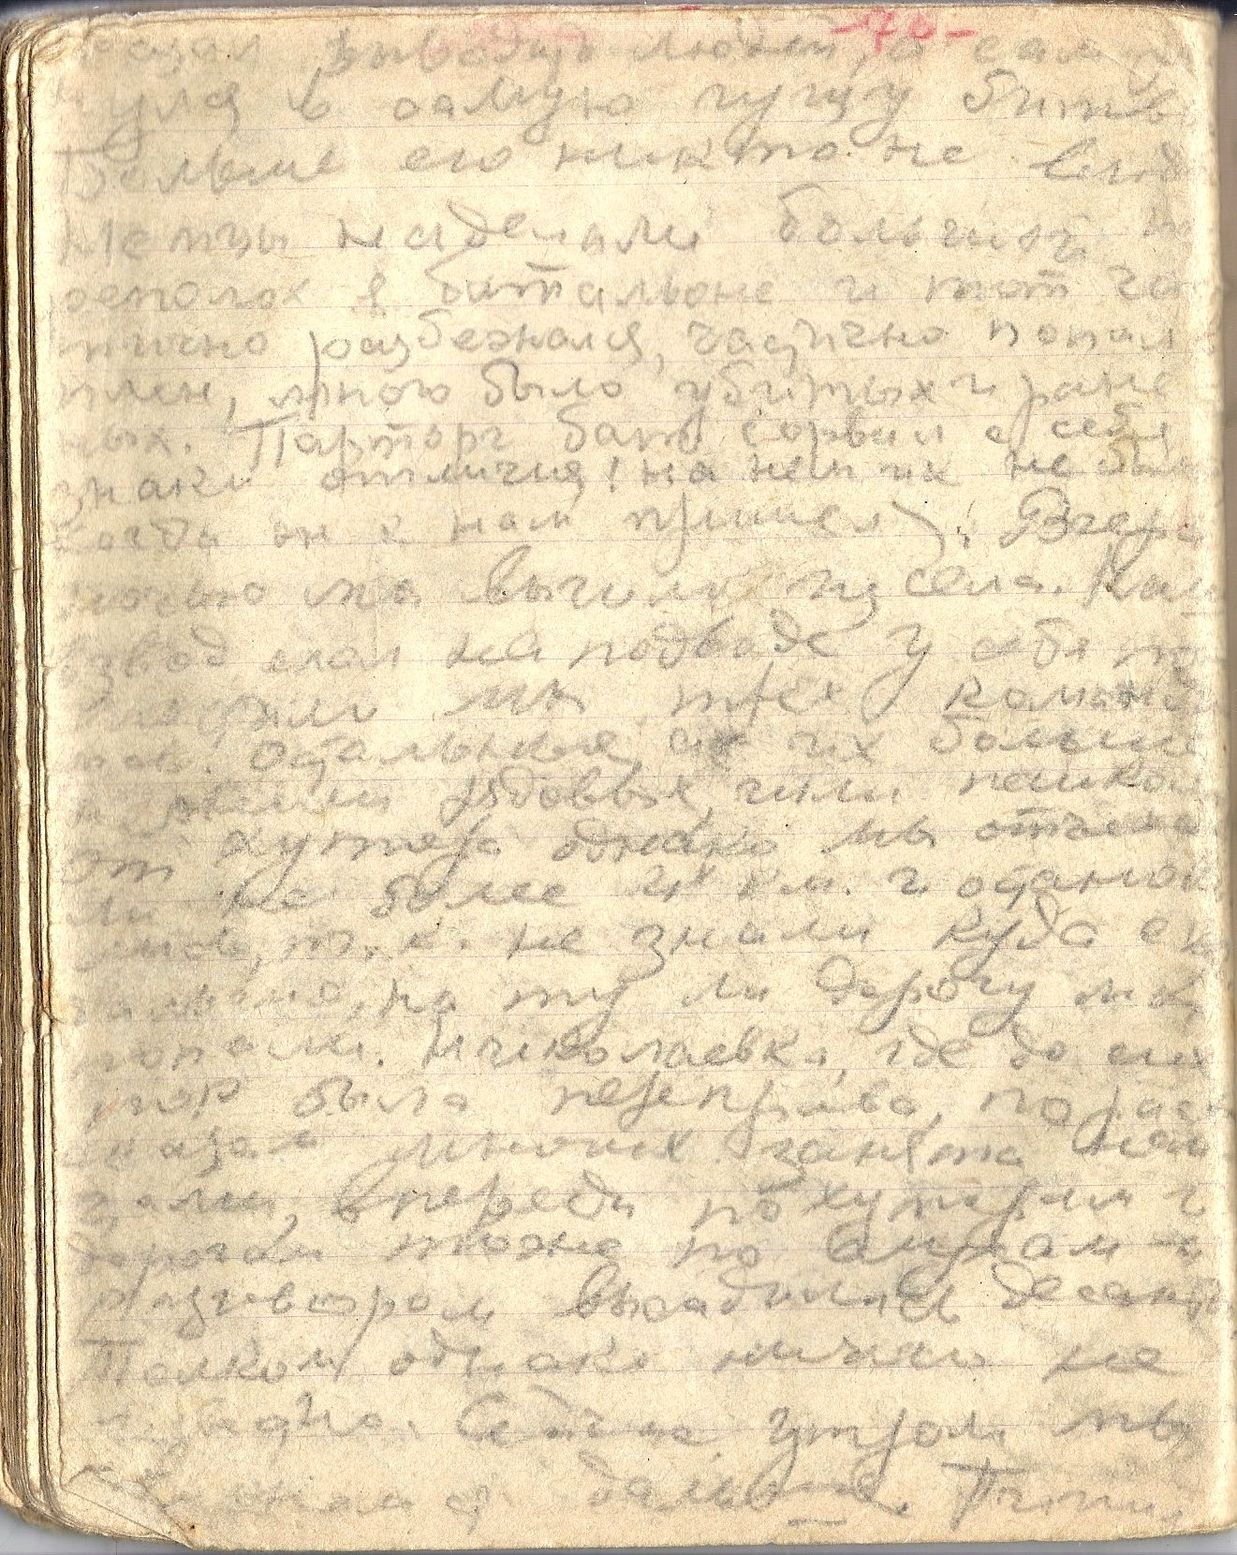 -70-
казал выводить людей, а сам
нулся в самую гущу битв
Больше его никто не вид
Немцы наделали большой пе
реполох в батальоне и тот час
тично разбежался, частично попал в
плен, много было убитых и ране
ных. Парторг бат. сорвал с себя
знаки отличия (на нем их не было
когда он к нам пришел). Вчера
ночью мы вышли из села. Наш
взвод ехал на подводе у себя по
мы трех команди
ров. Остальные, а их больше
рядовых, шли пешком
от хутора однако мы отъеха
ли не более 4х км. и останов
ились, т. к. не знали куда ехать
на ту ли дорогу мы
попали. Николаевка, где до сих
пор была переправа, по рас
сказам многих занята нем
цами, впереди по хуторам и
дорогам тоже по слухам и
разговорам высадились десанты
Толком однако ничего не
известно. Сегодня утром мы
дальше.